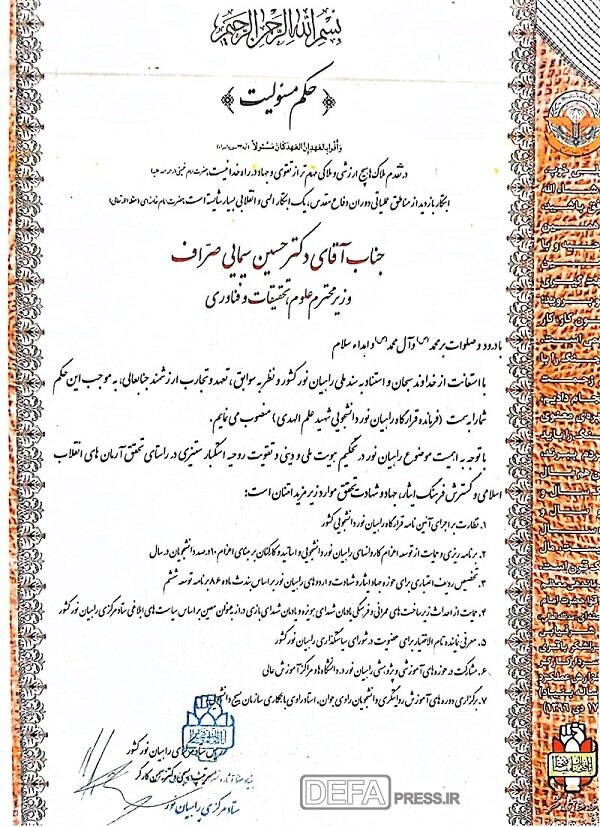 بسم الله الرحمن الرحیم
حکم مسئولیت
وَ أَوفُوا بِالعَهدِ إِنَّ العَهدَ کَانَ مَسئُولاً
در تقدم ملاک‌ها هیچ ارزشی و ملاکی مهم تر از تقوی و جهاد در راه خدا نیست
ابتکار بازدید از مناطق عملیاتی دوران دفاع مقدس، یک ابتکار الهی و انقلابی بسیار شایسته است
جناب آقای دکتر حسین سیمایی صرّاف
وزیر محترم علوم، تحقیقات و فناوری
با درود و صلوات بر محمد (ص) و آل محمد (ص) و اهداء سلام
با استعانت از خداوند سبحان و استناد به سند ملی راهیان نور کشور و نظر به سوابق، تعهد و تجارب ارزشمند جنابعالی، به موجب این حکم
شما را به سمت (فرمانده قرارگاه راهیان نور دانشجویی شهید علم الهدی) منصوب می نمایم.
با توجه به اهمیت موضوع راهیان نور در تحکیم هویت ملی و دینی و تقویت روحیه استکبار ستیزی در راستای تحقق آرمان های انقلاب
اسلامی و گسترش فرهنگ ایثار، جهاد و شهادت تحقق موارد زیر مزید امتنان است:
۱. نظارت بر اجرای آئین نامه قرارگاه راهیان نور دانشجویی کشور
۲. برنامه ریزی و حمایت از توسعه اعزام کاروانهای راهیان نور دانشجویی و اساتید و کارکنان بر مبنای اعزام ۱۰ درصد دانشجویان در سال
۳. تخصیص ردیف اعتباری برای حوزه جهاد ایثار و شهادت و اردوهای راهیان نور بر اساس بند ث ماده ۸۶ برنامه توسعه ششم
۴. حمایت از احداث زیرساخت های عمرانی و فرهنگی یادمان شهدای هویزه و یادمان شهدای بازی دراز به عنوان معین بر اساس سیاست های ابلاغی ستاد مرکزی راهیان نور کشور
۵. معرفی نماینده تام الاختیار برای عضویت در شورای سیاستگذاری راهیان نور کشور
۶. مشارکت در حوزه های آموزشی و پژوهشی راهیان نور در دانشگاه‌ها و مراکز آموزش عالی
۷. برگزاری دوره های آموزش روایتگری دانشجویان راوی جوان، استاد راوی با همکاری سازمان بسیج دانشجویی
راهیان نور کشور
ستاد مرکزی راهیان نور
DEFA PRESS.IR